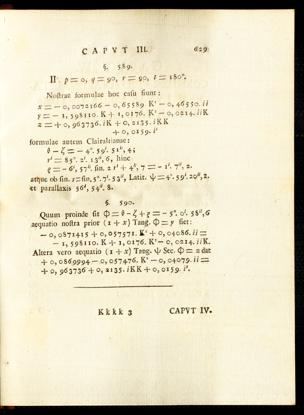 CAPVT III. 629
§. 589.
II p = 0, q = 90, r = 90, t = 180°.
Nostrae formulae hoc casu sunt:
x = − 0,0072166 − 0,65589 K' − 0,46550.ii
y = − 1,598110. K + 1,0176. K' − 0,0214.iiK
z = + 0,963736.iK + 0,2135.iKK
+ 0,0159.i³
formulae autem Clairaltianae:
θ − ζ = − 4°. 59'. 51'',4;
r' = 85°. 2'. 13'',6, hinc
ϱ = − 6', 57''. sin. 2 r' + 4'', 7 = − 1'. 7'', 2.
atque ob sin. s = sin. 5°. 7'. 53'', Latit. ψ = 4°. 59'. 20'', 2.
et parallaxis 56', 54''. 8.
§. 590.
Quum proinde sit Φ = θ − ζ + ϱ = − 5°. 0'. 58'',6
aequatio nostra prior (1 + x) Tang. Φ = y fiet:
− 0,0871415 + 0,057571. K' + 0,04086.ii =
− 1,598110. K + 1,0176. K' − 0,0214.iiK.
Altera vero aequatio (1 + x) Tang. ψ Sec. Φ = z dat
+ 0,0869994 − 0,057476. K' − 0,04079.ii =
+ 0,963736 + 0,2135.iKK + 0,0159.i³.
Kkkk 3 CAPVT IV.